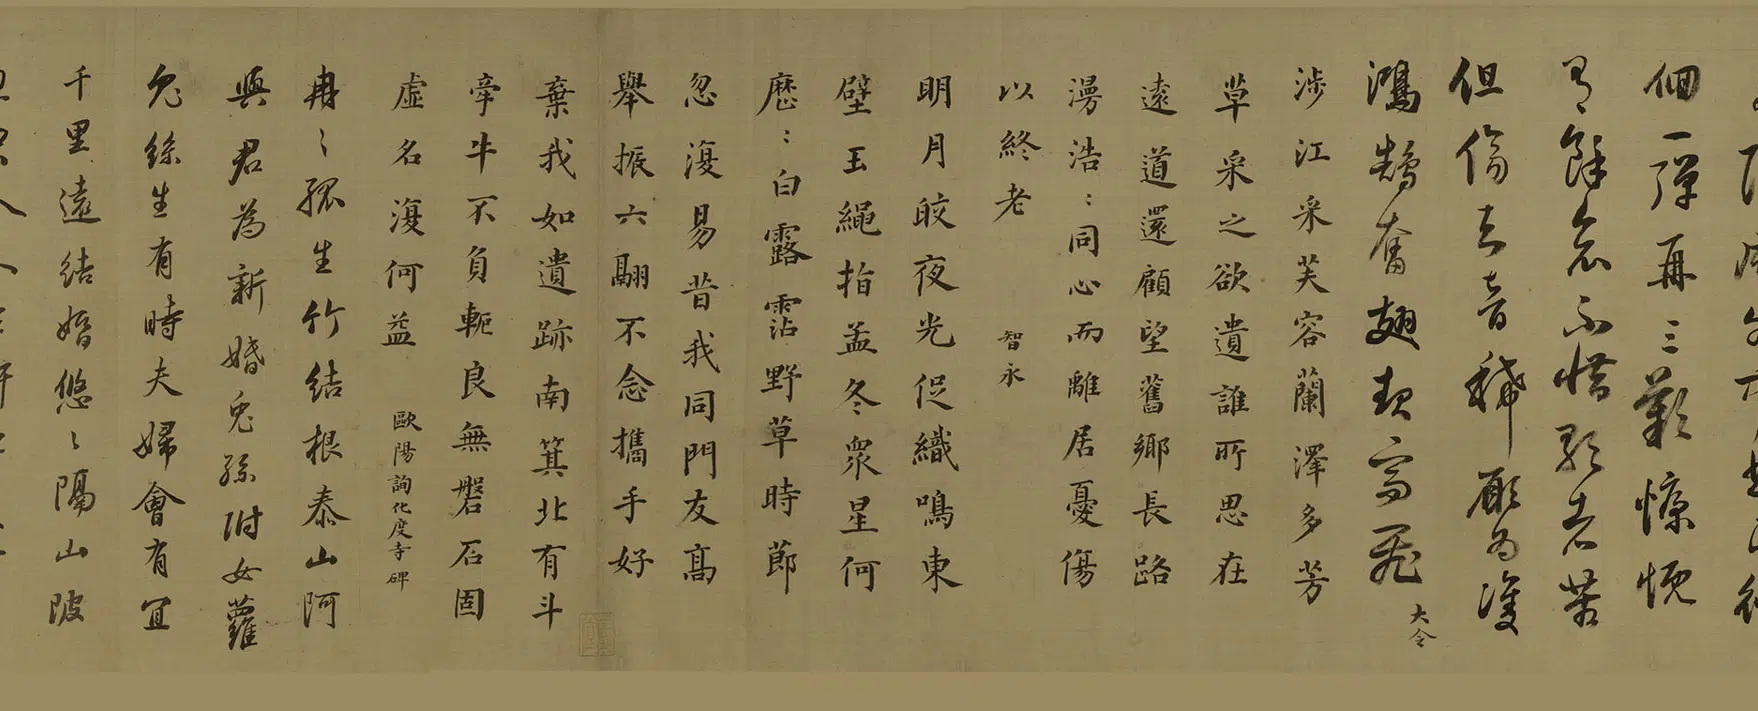 佪一彈再三歎慷慨
有餘哀不惜歌者苦
但傷知音稀願為雙
鴻鵠奮翅起高飛 大令
涉江采芙容蘭澤多芳
草采之欲遺誰所思在
遠道還顧望舊鄉長路
漫浩〻同心而離居憂傷
以終老 智永
明月皎夜光促織鳴東
壁玉繩指孟冬眾星何
歷〻白露霑野草時節
忽復易昔我同門友高
舉振六翮不念攜手好
棄我如遺跡南箕北有斗
牽牛不負軛良無磐石固
虛名復何益 歐陽詢化度寺碑
冉〻孤生竹結根泰山阿
與君為新婚兔絲附女蘿
兔絲生有時夫婦會有宜
千里遠結婚悠〻隔山陂